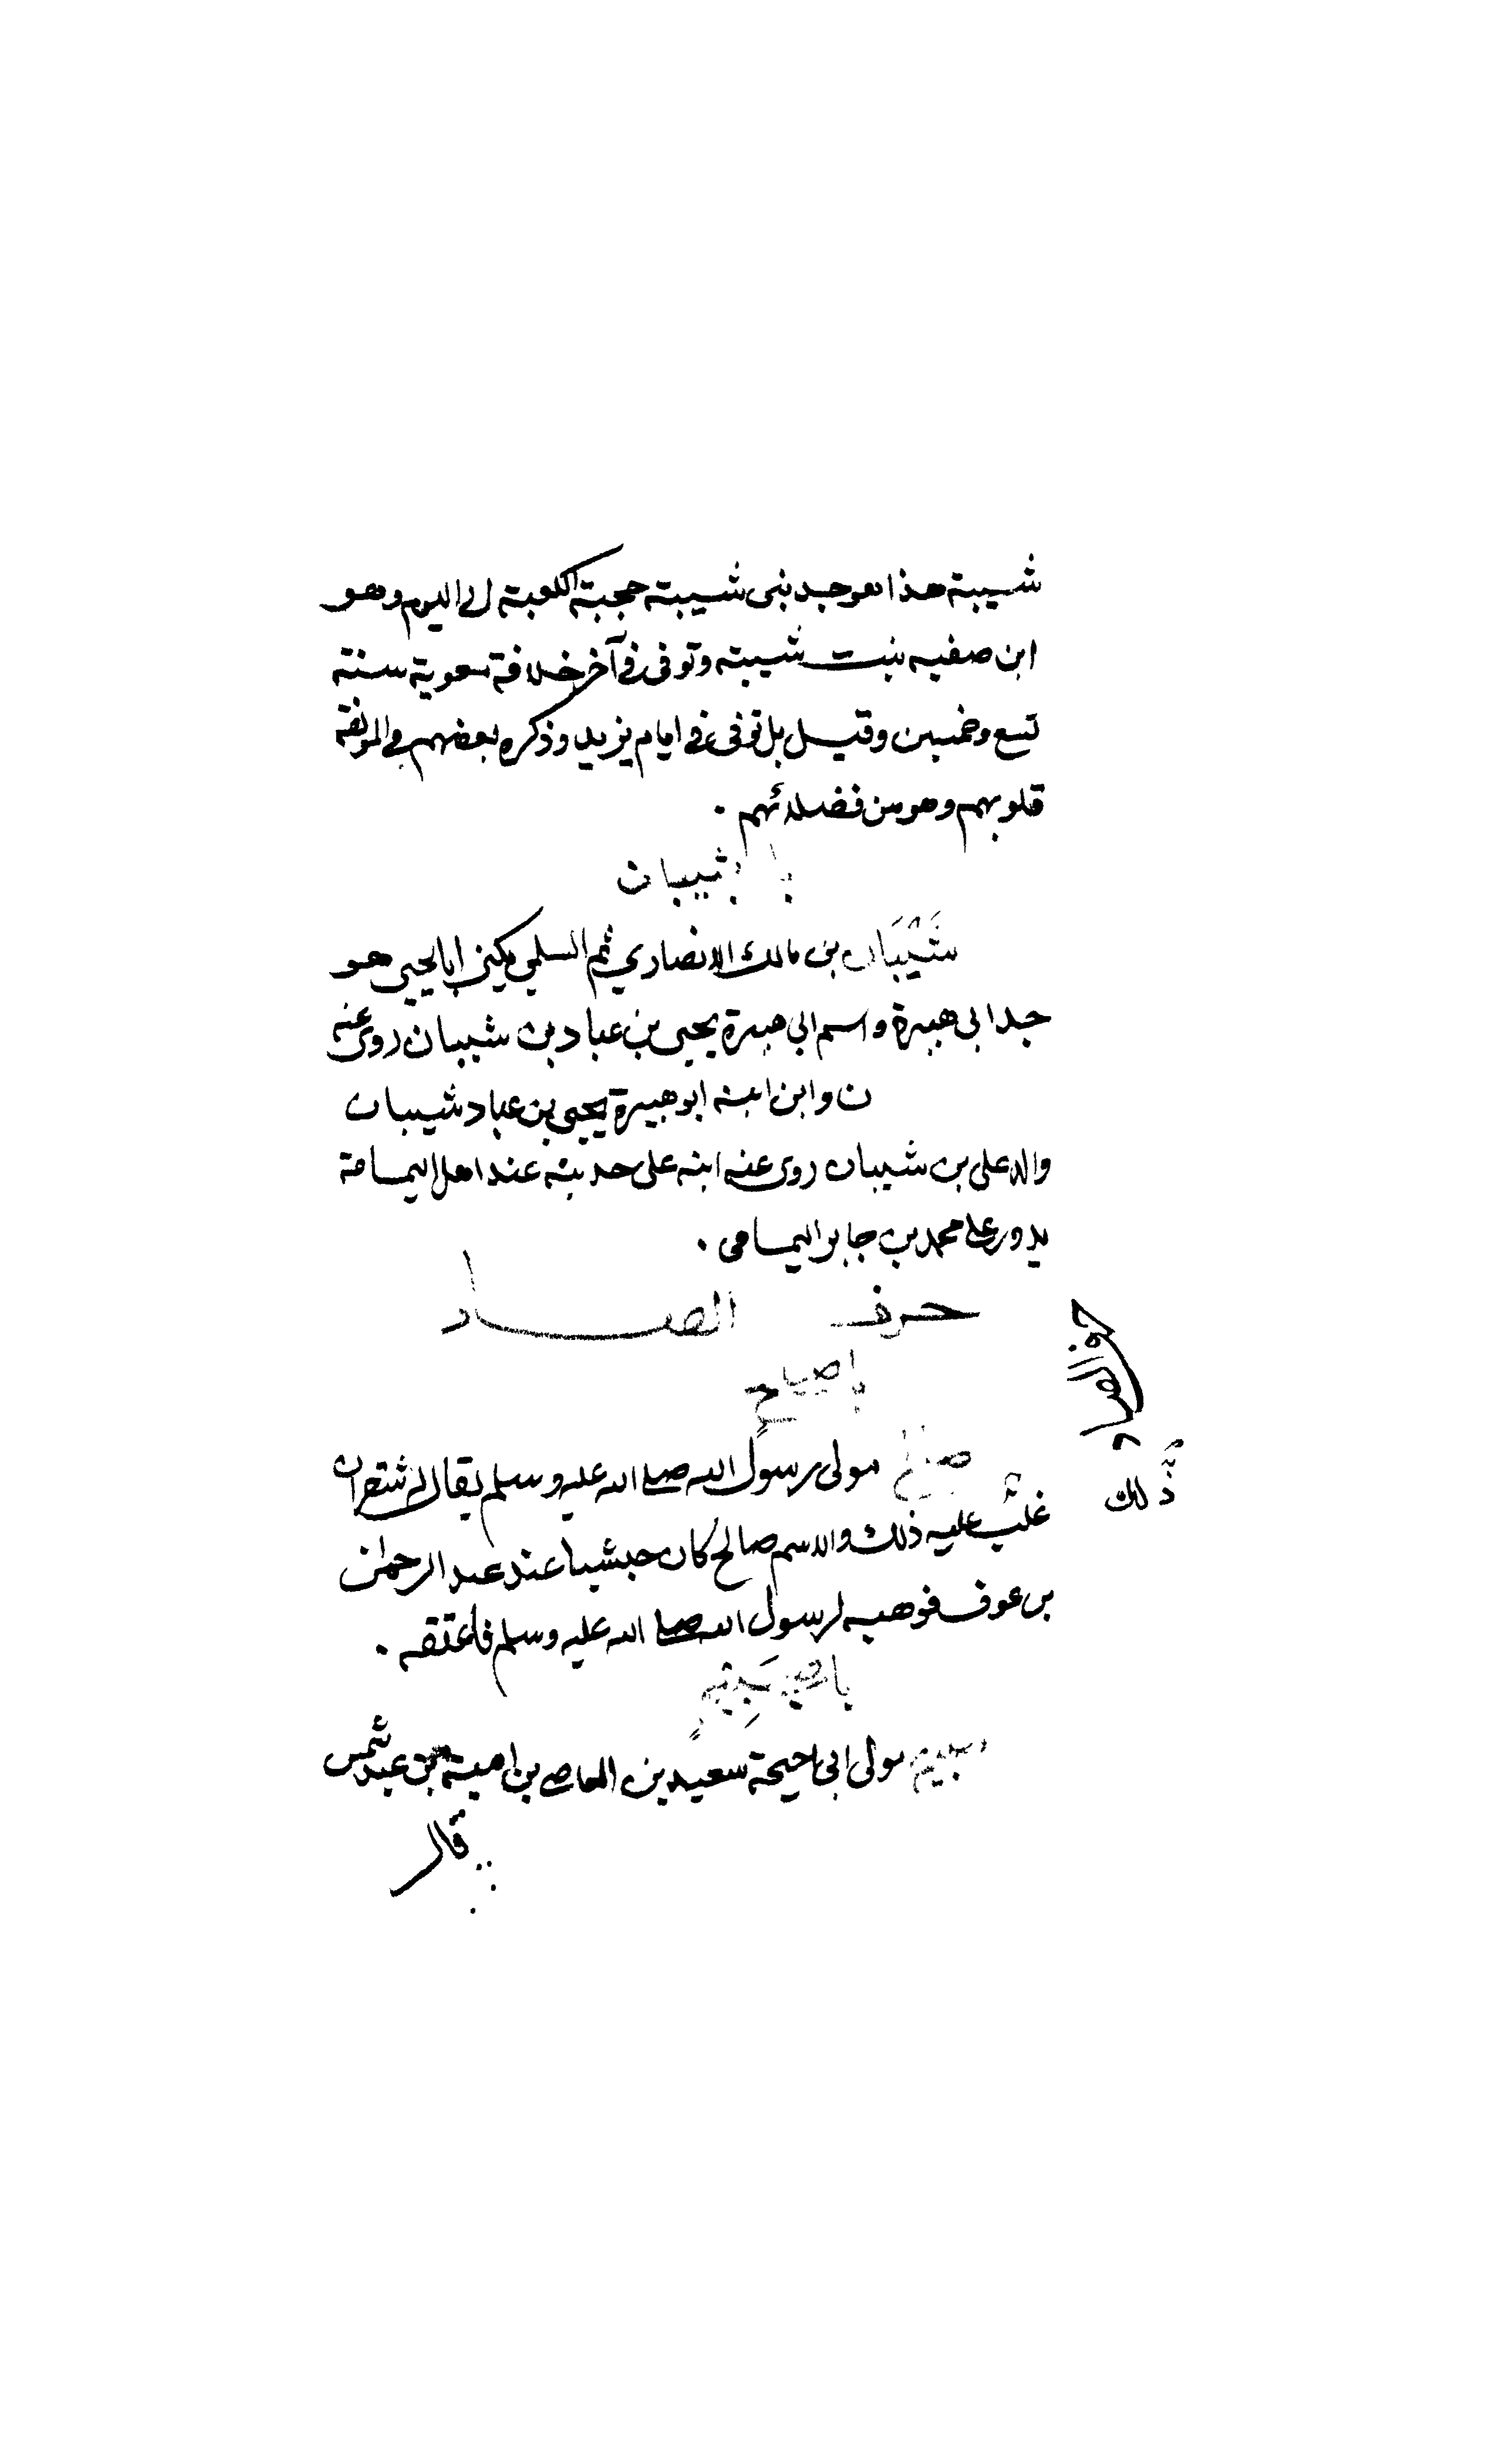 شيبة هذا هو جد بنى شيبة حجبة الكعبة الى اليوم وهو
ابن صفيه بنت شيبته وتوفى في آخر خلافة معوية سنة
تسع وخمسين وقيل بل توفى في ايام يزيد وذكره بعضهم في المولفة
قلوبهم وهو من فضلائهم .
باب شيبان
شَيْبَان بن مالك الانصاري ثم السلمي يكنى ابا يحيى هو
جد ابى هبيرة واسم ابي هبيرة يحيى بن عباد بن شيبان روى عنه
ن وابن ابنه ابو هبيرة يحيى بن عباد شيبان
والد على بن شيبان روى عنه ابنه على حديثه عند اهل اليمامة
يدور على محمد بن جابر اليمامى .
حرف الصاد
حرف الصاد
صالح مولى رسول الله صلى الله عليه وسلم يقال له شقران
غلب عليه ذلك والاسم صالح كان حبشيا عند عبد الرحمن
ذلك
بن عوف فوهبه لرسول الله صلى الله عليه وسلم فاعتقه .
صبيح مولى ابى احيحة سعيد بن العاصى بن امية بن عبد شمس
قال